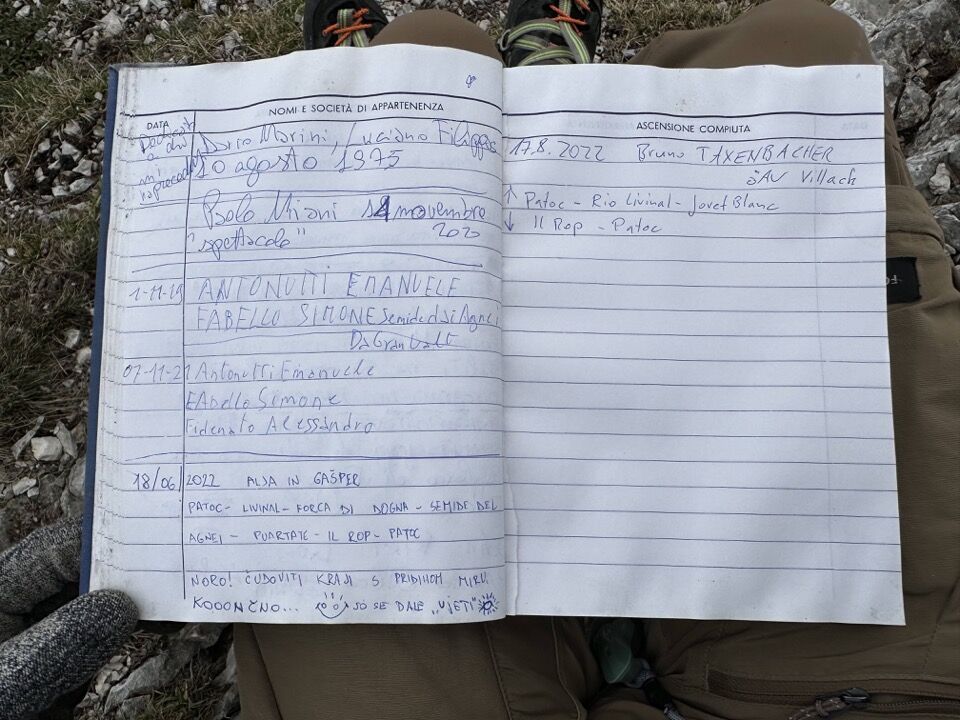 DATA
NOMI E SOCIETÀ DI APPARTENENZA
Dario Marini, Luciano Filippas
10 agosto 1973
Paolo Miani 1 novembre
"spettacolo" 2020
1-11-19 ANTONUTTI EMANUELE
FABELLO SIMONE Semide dsi Agnei
Da Gran
07-11-21 Antonutti Emanuele
FAbello Simone
Fidenato Alessandro
18/06/2022 ALJA IN GAŠPER
PATOC - LIVINAL - FORCA DI DOGNA - SEMIDE DEL
AGNEI - PUARTATE - IL ROP - PATOC
NORO! ČUDOVITI KRAJI S PRIDIHOM MIRU.
KOOONČNO... SO SE DALE "UJETI"
ASCENSIONE COMPIUTA
17.8.2022 Bruno TAXENBACHER
ÖAV Villach
↑ Patoc - Rio Livinal - Jovet Blanc
↓ Il Rop - Patoc